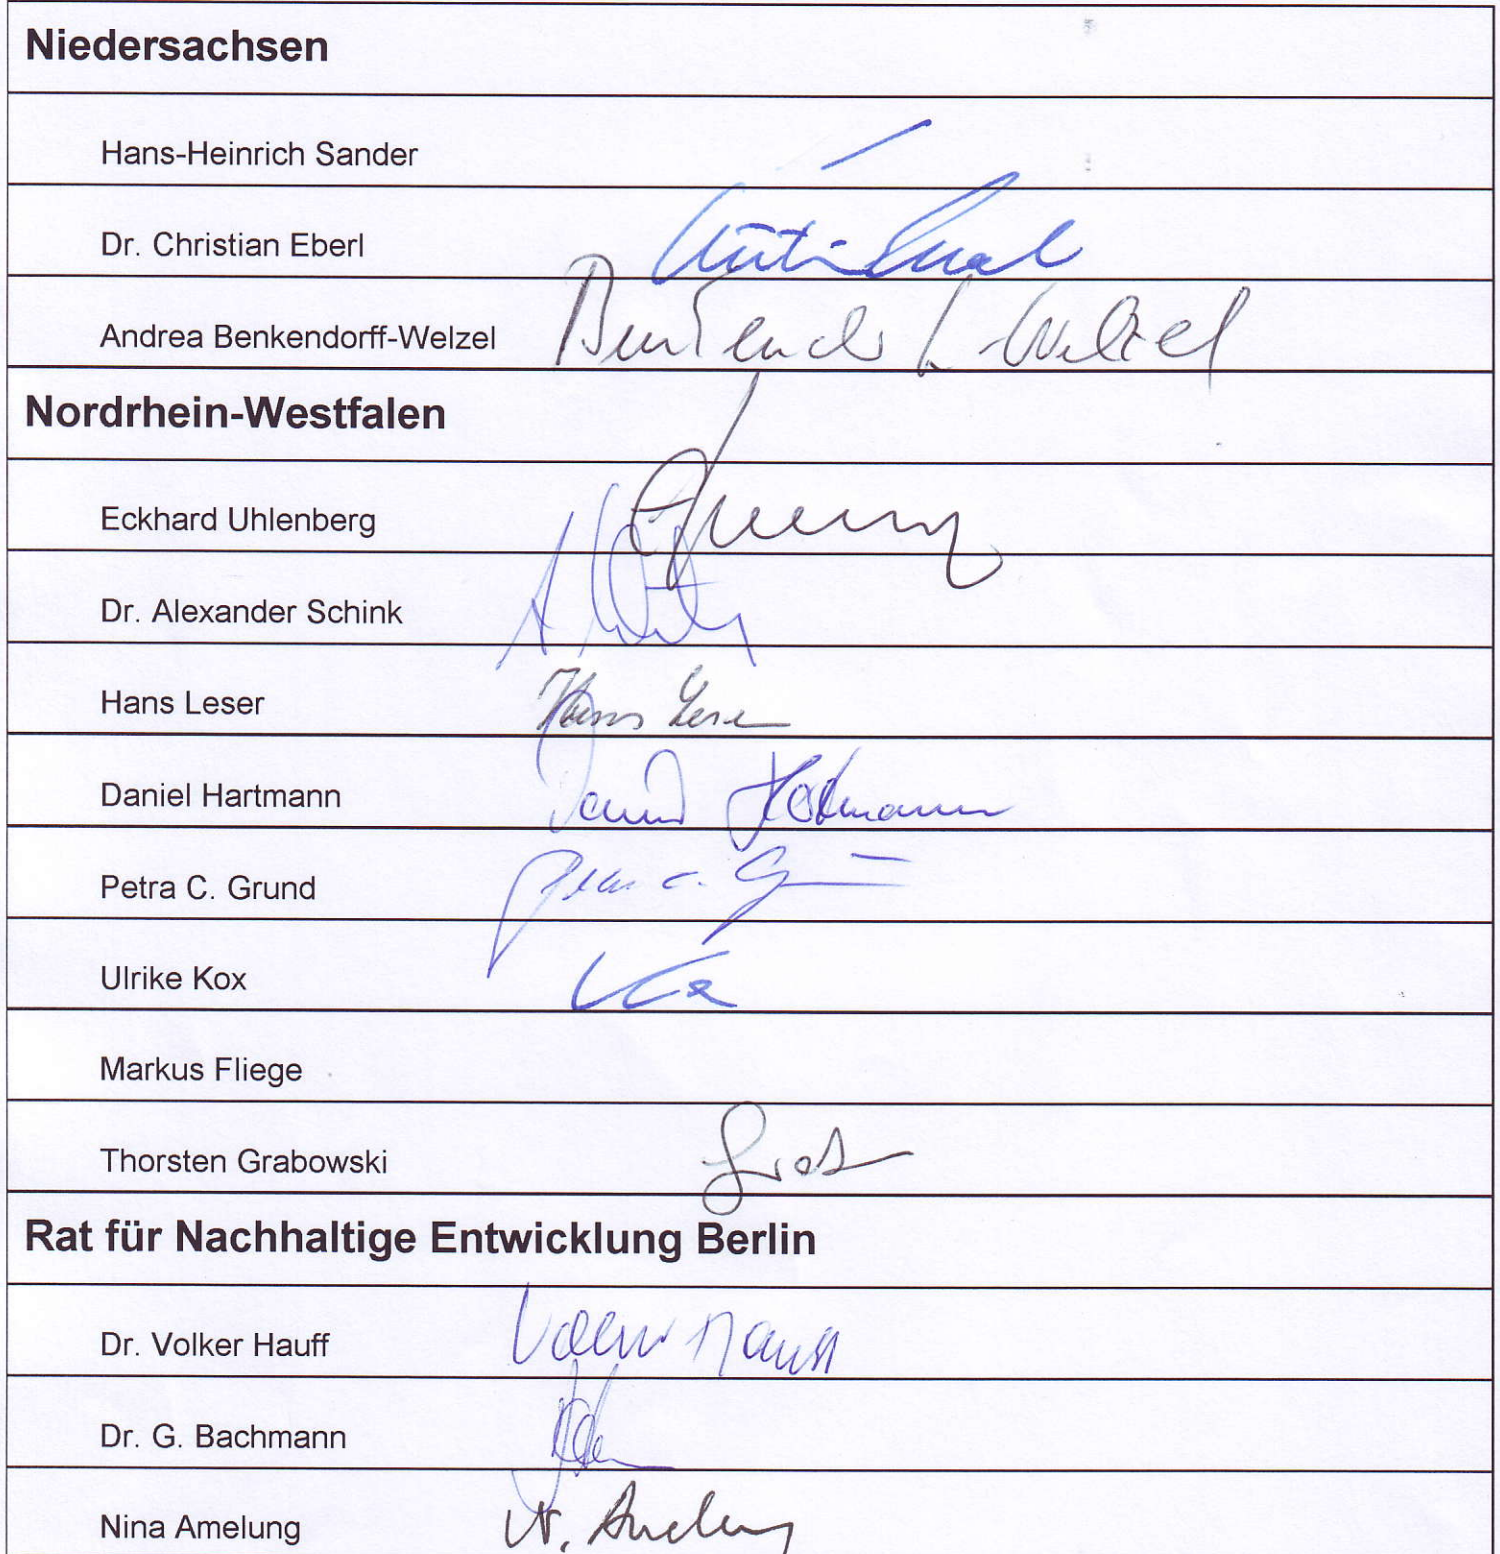 Niedersachsen
Hans-Heinrich Sander
Dr. Christian Eberl
Andrea Benkendorff-Welzel
Nordrhein-Westfalen
Eckhard Uhlenberg
Dr. Alexander Schink
Hans Leser
Hans Leser
Daniel Hartmann
Daniel Hartmann
Petra C. Grund
Ulrike Kox
Markus Fliege
Thorsten Grabowski
Rat für Nachhaltige Entwicklung Berlin
Dr. Volker Hauff
Volker Hauff
Dr. G. Bachmann
Nina Amelung
N. Amelung